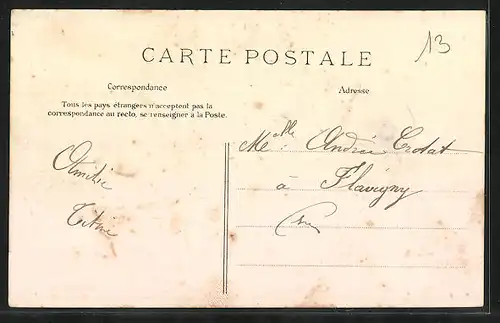 13
CARTE POSTALE
Correspondance
Tous les pays étrangers n'acceptent pas la
correspondance au recto, se renseigner à la Poste.
Adresse
Melle
à Flavigny